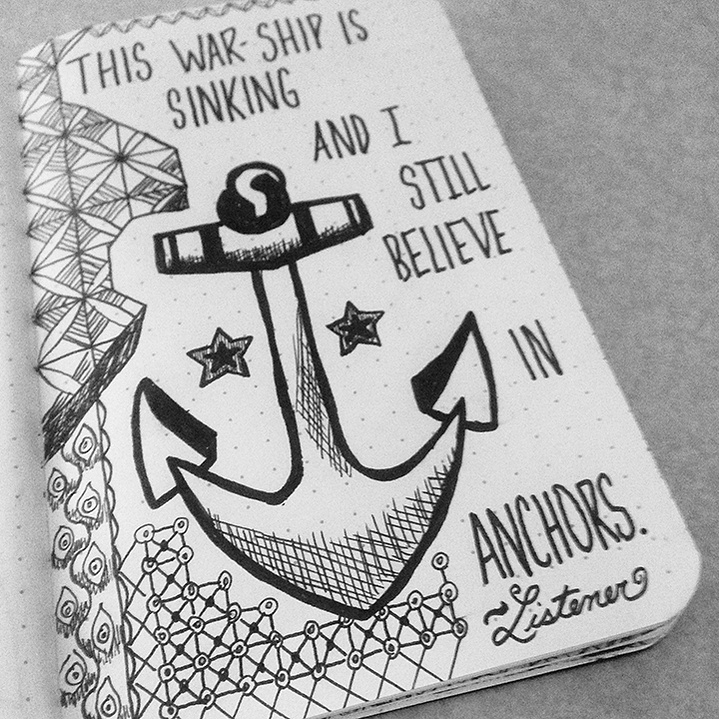 THIS WAR-SHIP IS
SINKING
AND I
STILL
BELIEVE
IN
ANCHORS.
~Listener